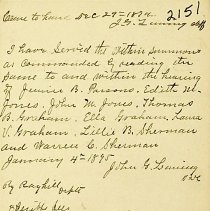 Came to hand Dec 29th 1894.
2151
I have Served the within Summons
as Commanded by reading the
Same to and within the hearing
of B. Parsons. Edith M.
Jones. John M. Jones. Thomas
B. Graham. Ella Graham, Laura
V. Graham. Lillie B. Sherman
and Warren C. Sherman
January 4th 1895-
John G.
By